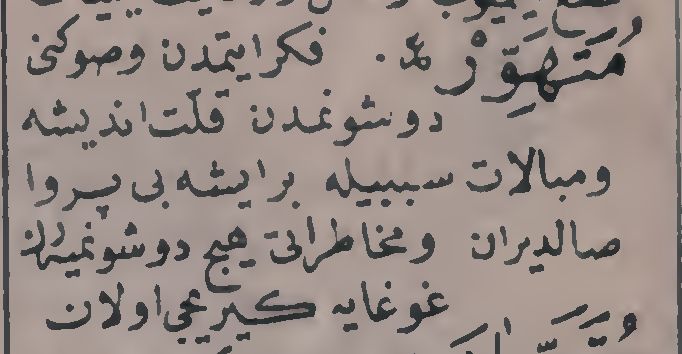 مُتَهَوِّرْ ع. فكر ايتمدن وصوكنى
دوشونمدن قلّت انديشه
ومبالات سببيله برايشه بى پروا
صالديران ومخاطراتى هيچ دوشونميه رك
غوغايه كيريجى اولان